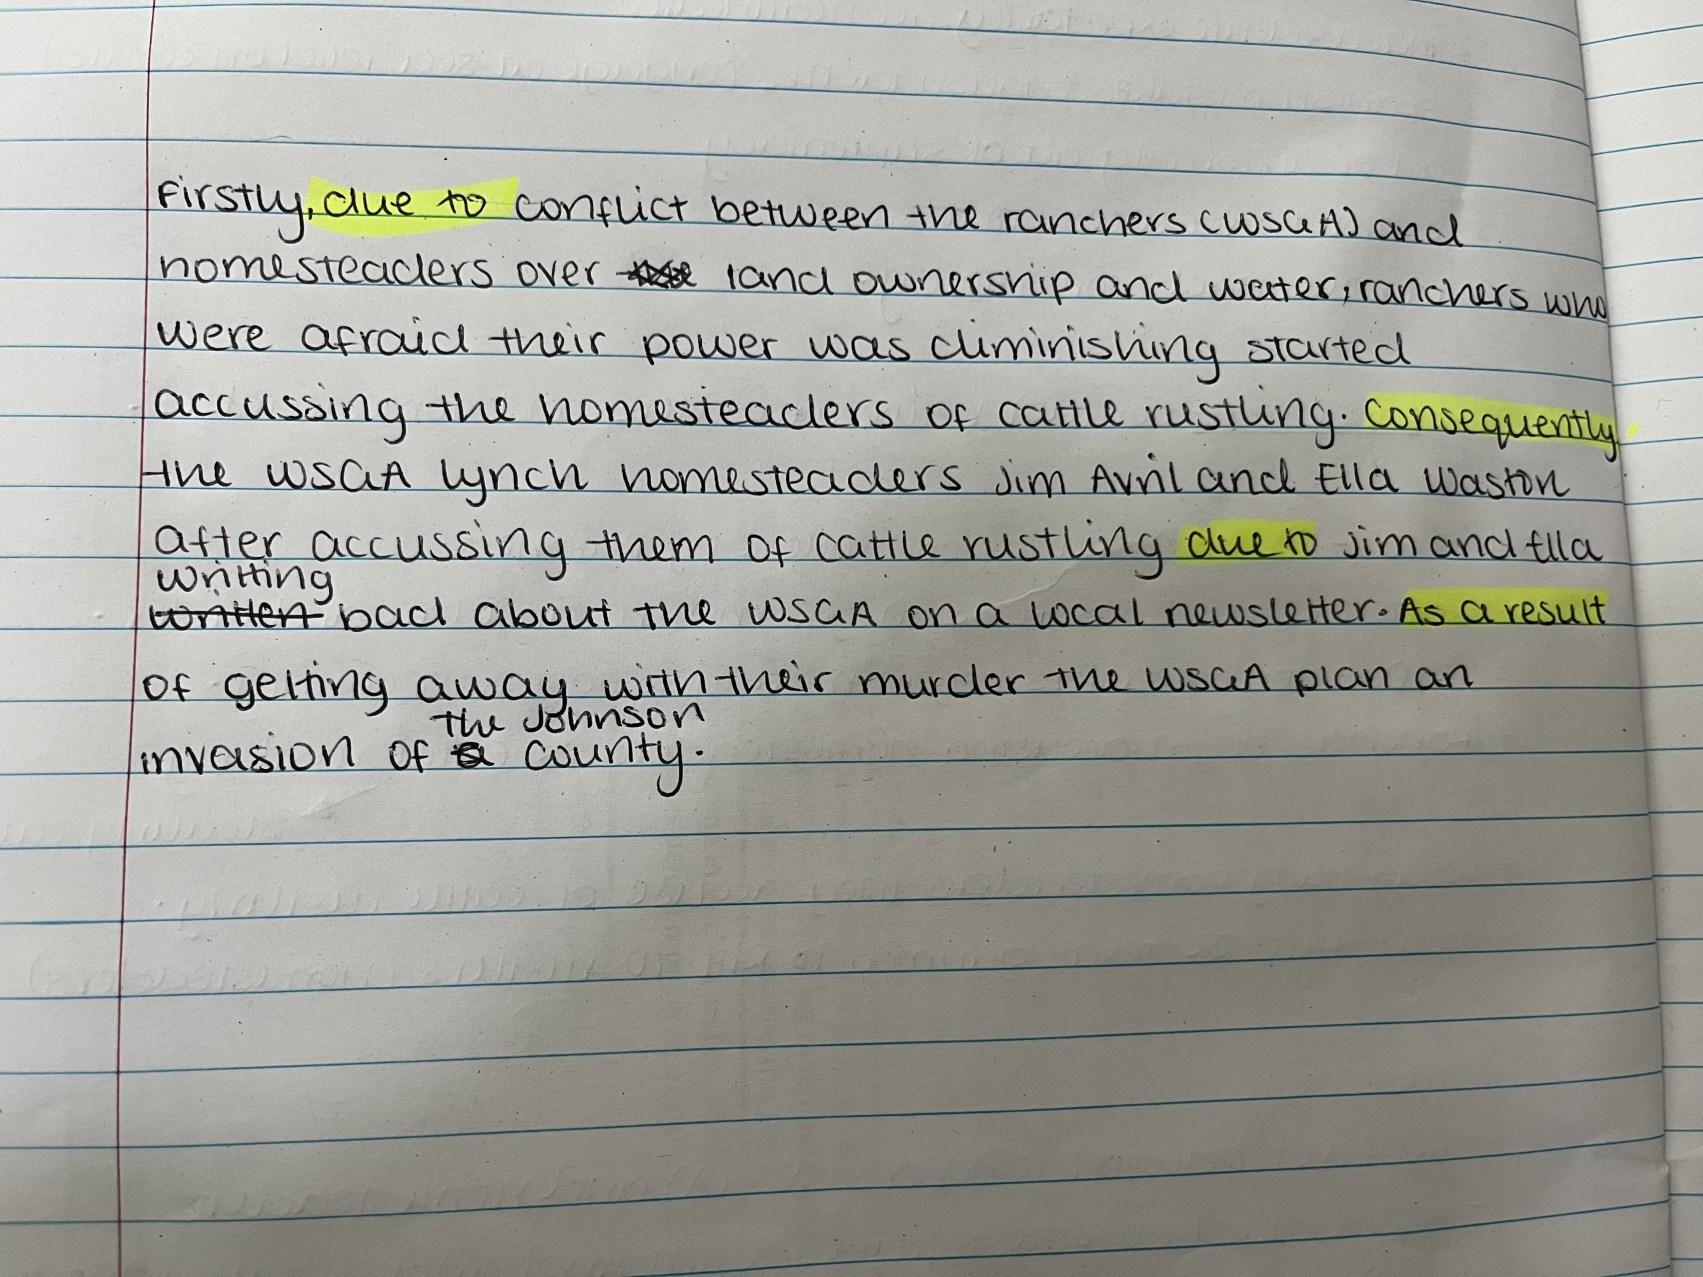 Firstly, due to conflict between the ranchers (WSGA) and
homesteaders over land ownership and water, ranchers who
were afraid their power was diminishing started
accussing the homesteaders of cattle rustling. Consequently
the WSGA lynch homesteaders Jim Avril and Ella Waston
after accussing them of cattle rustling due to Jim and Ella
writting
written bad about the WSGA on a local newsletter. As a result
of getting away with their murder the WSGA plan an
the Johnson
invasion of a county.